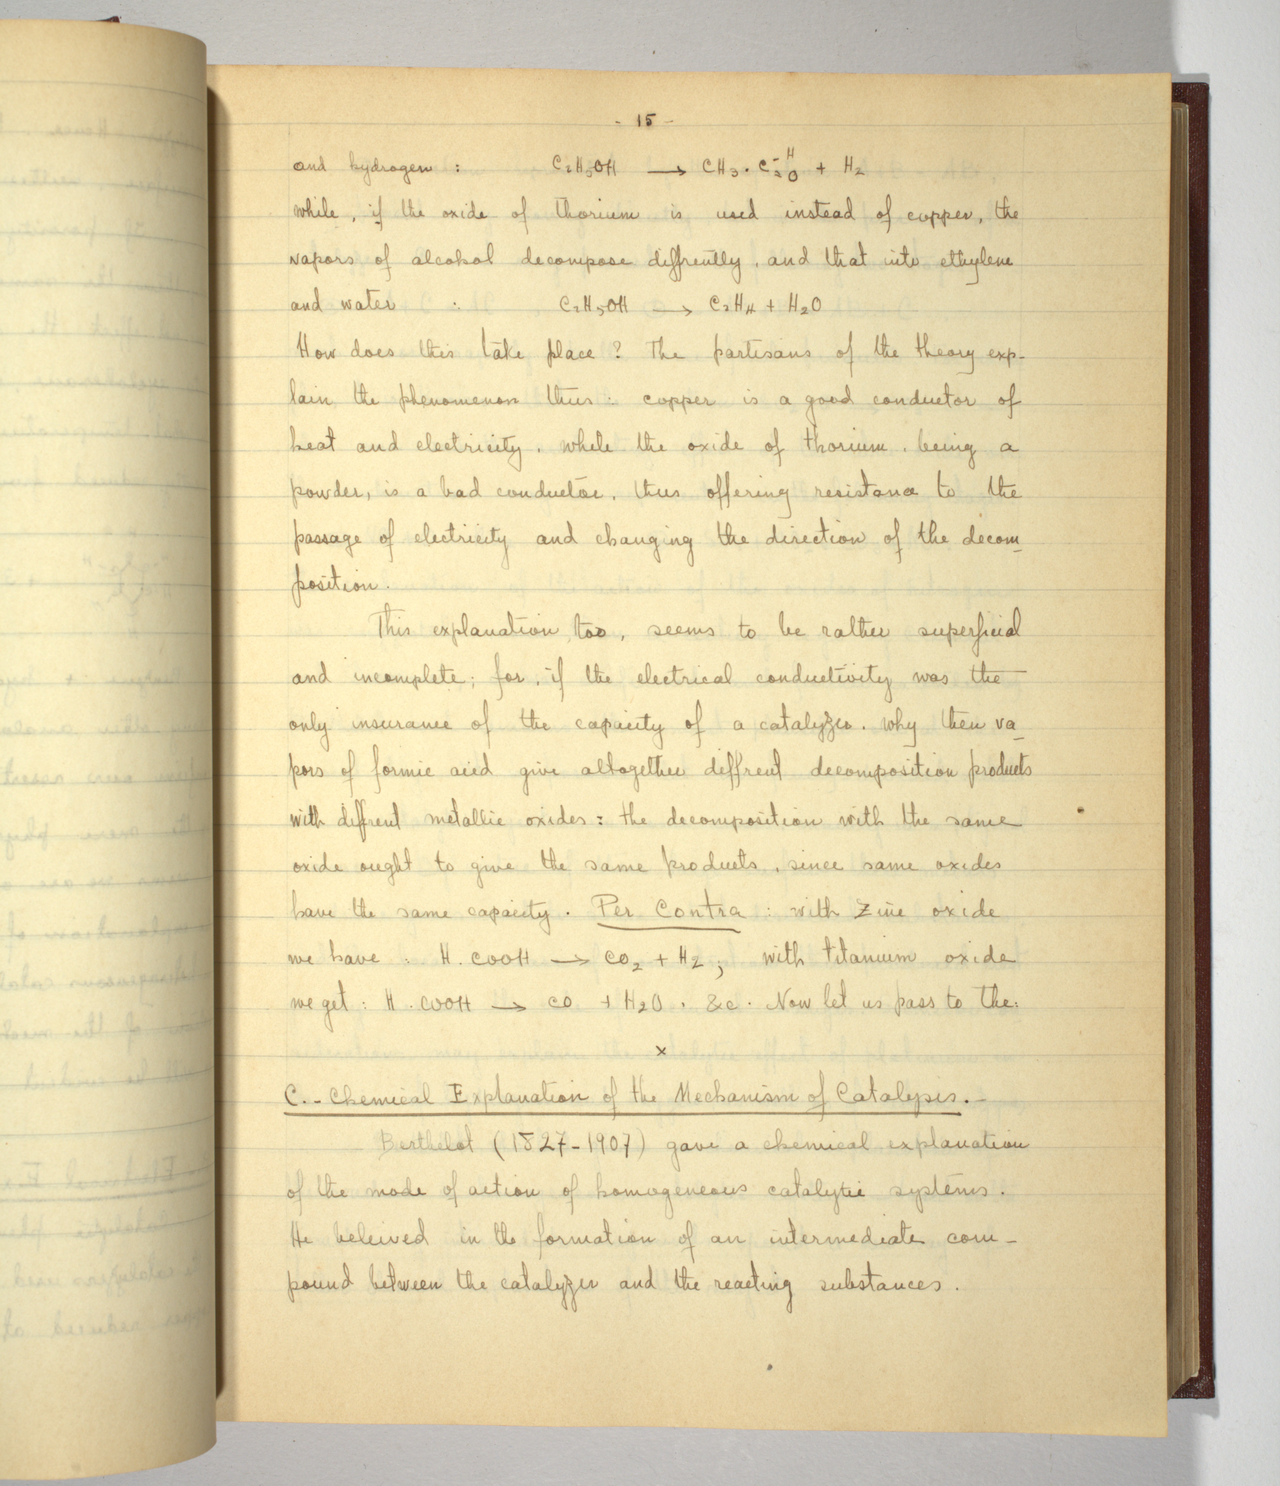 - 15 -
and hydrogen : C₂H₅OH ⟶ CH₃ . C⁻ᴴ₌O + H₂
while, if the oxide of thorium is used instead of copper, the
vapors of alcohol decompose diffrently, and that into ethylene
and water : C₂H₅OH ⟶ C₂H₄ + H₂O
How does this take place ? The partisans of the theory exp-
lain the phenomenon thus : copper is a good conductor of
heat and electricity, while the oxide of thorium, being a
powder, is a bad conductor, thus offering resistance to the
passage of electricity and changing the direction of the decom-
position.
This explanation, too, seems to be rather superficial
and incomplete; for, if the electrical conductivity was the
only insurance of the capacity of a catalyzer, why then va-
pors of formic acid give altogether diffrent decomposition products
with diffrent metallic oxides : the decomposition with the same
oxide ought to give the same products, since same oxides
have the same capacity. Per Contra : with Zinc oxide
we have : H . COOH ⟶ CO₂ + H₂ ; with titanium oxide
we get : H . COOH ⟶ CO + H₂O . &c. Now let us pass to the:
x
C. - Chemical Explanation of the Mechanism of Catalysis. -
Berthelot (1827-1907) gave a chemical explanation
of the mode of action of homogeneous catalytic systems.
He beleived in the formation of an intermediate com-
pound between the catalyzer and the reacting substances.